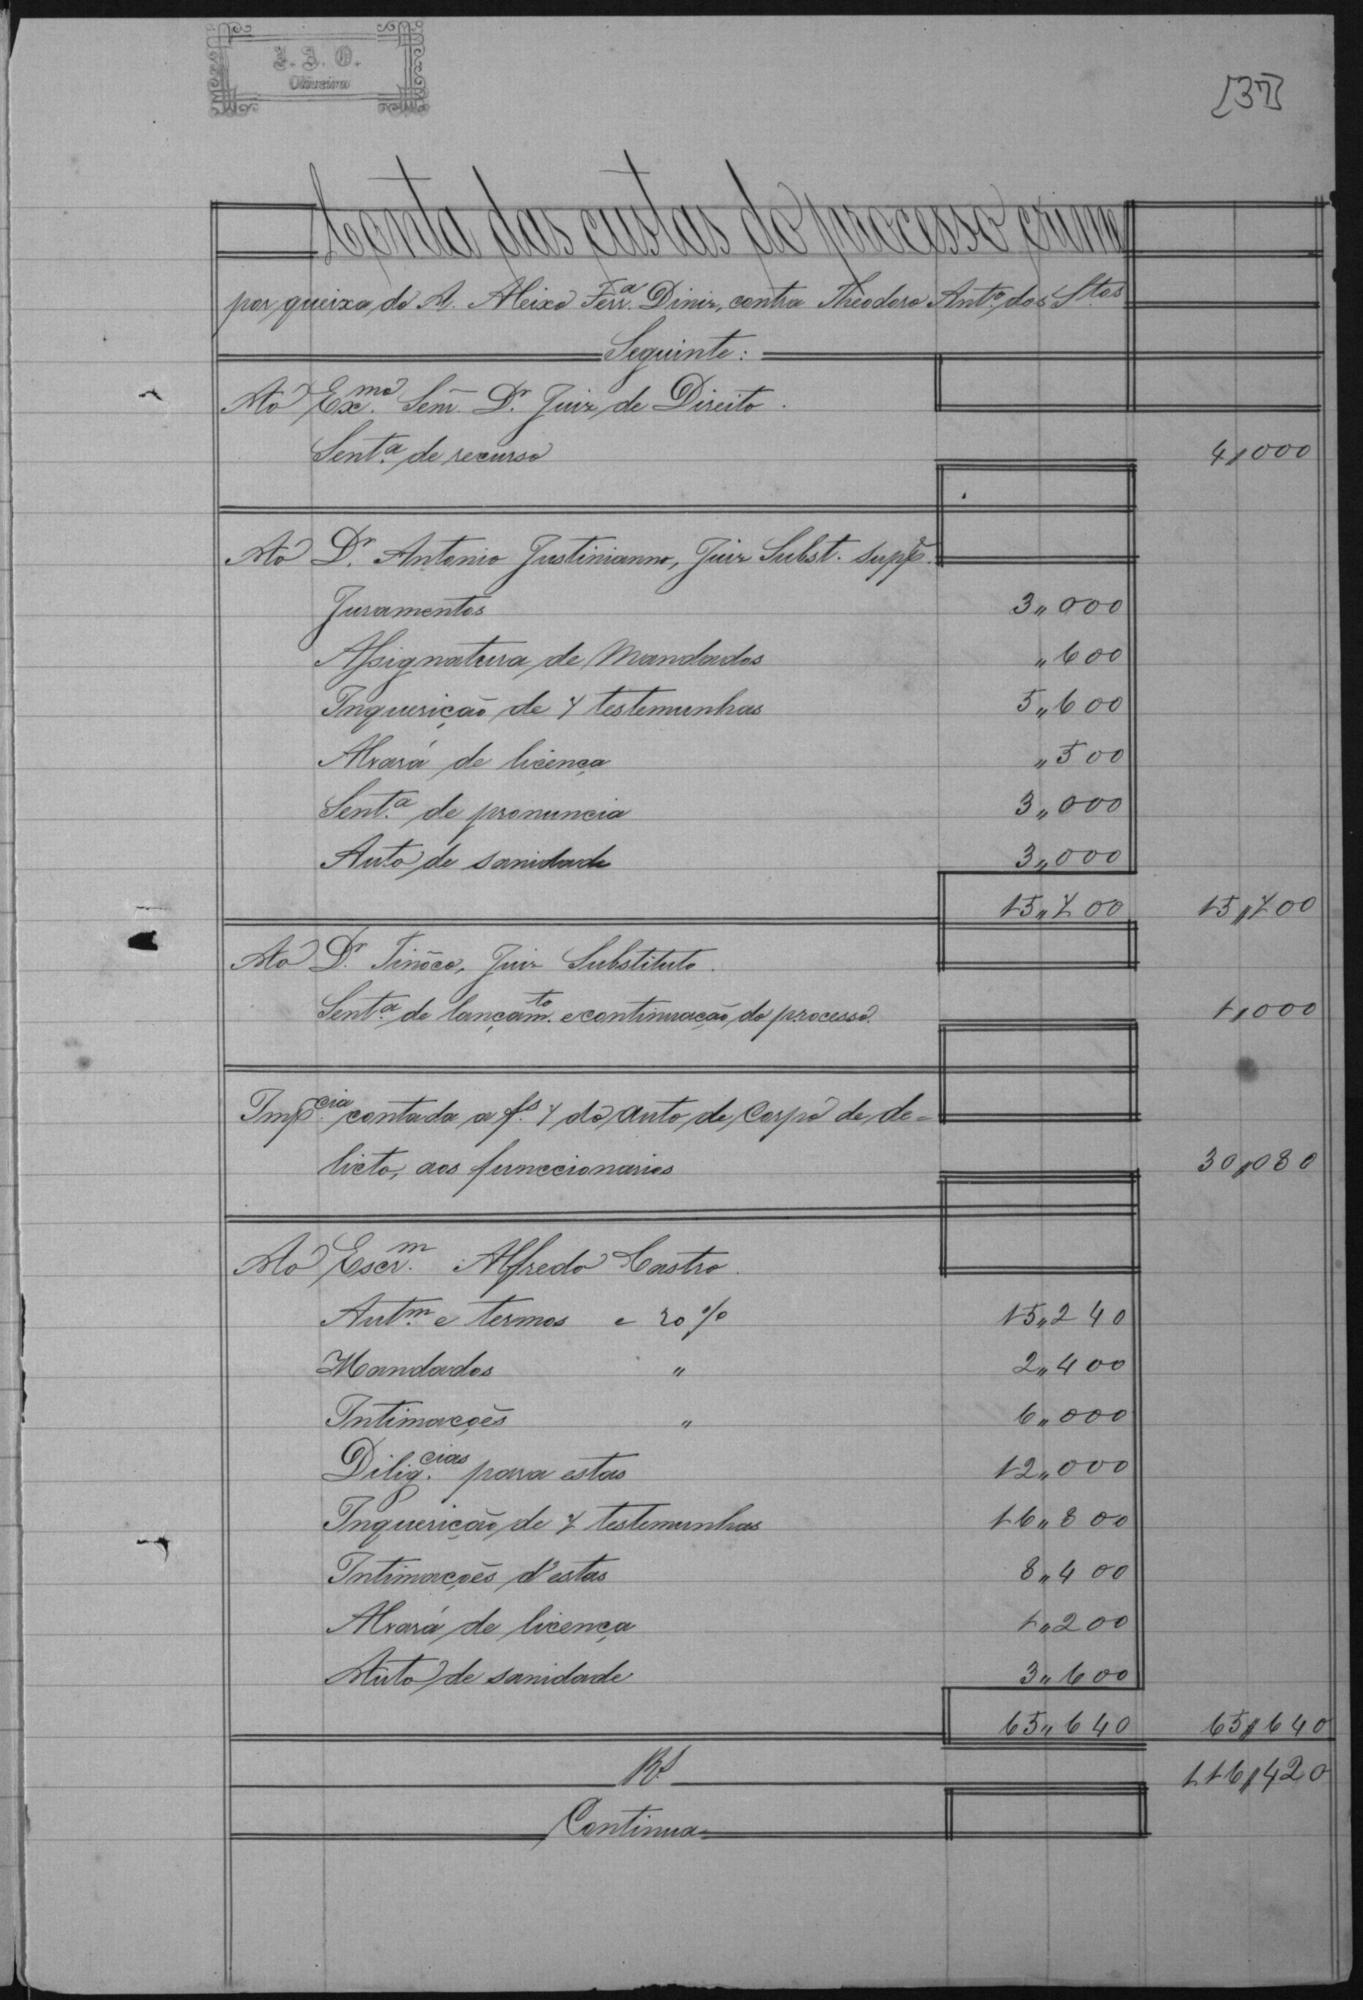 J. J. O.
Oliveira
[37]
Conta das custas do processo crime
por queixa do A. Aleixo Ferr.ª Diniz, contra Theodoro Ant.º dos S.tos
Seguinte:
Ao Ex.mo Senr. Dr. Juiz de Direito.
Sent.ª de recurso 4,000
Ao Dr. Antonio Justinianno, Juiz Subst. supp.e
Juramentos 3,,000
Assignatura de Mandados ,,600
Inquerição de 7 testemunhas 5,,600
Alvará de licença ,,500
Sent.ª de pronuncia 3,,000
Auto de sanidade 3,,000
15,,700 15,,700
Ao Dr. Tinôco, Juiz Substituto.
Sent.ª de lançam.to e continuação do processo. 1,000
Imp.cia contada a f.s 7 do auto de Corpo de de=
licto, aos funccionarios 30,,080
Ao Escr.m Alfredo Castro.
Aut.m e termos e 20 % 15,,240
Mandados " 2,,400
Intimações " 6,,000
Dilig.cias para estas 12,,000
Inquerição de 7 testemunhas 16,,800
Intimações d'estas 8,,400
Alvará de licença 1,,200
Auto de sanidade 3,,600
65,,640 65,,640
Rs 116,,420
Continua